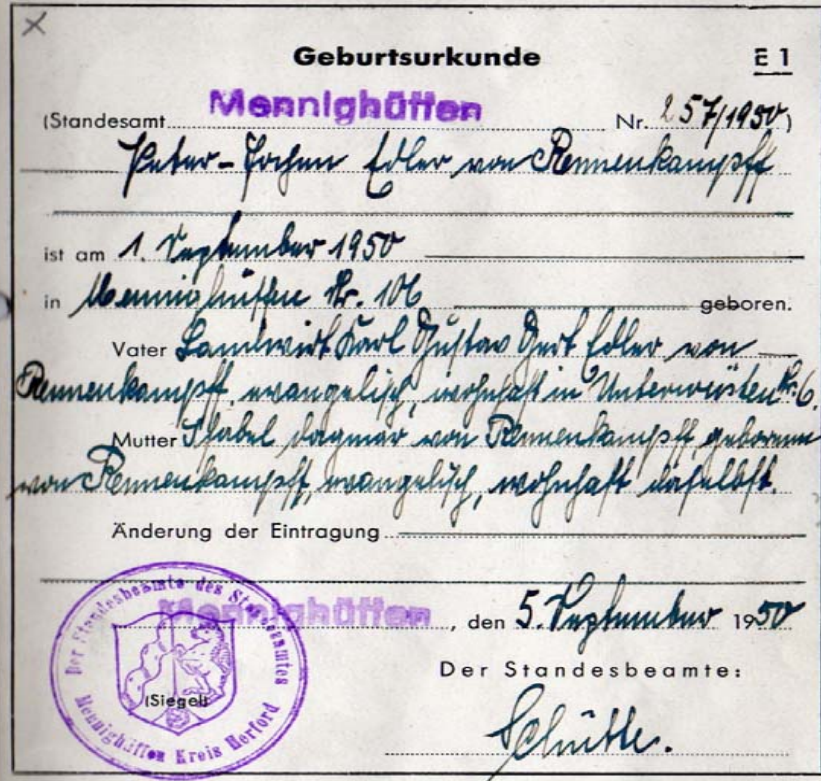 Geburtsurkunde E 1
(Standesamt Mennighüffen Nr. 257/1950)
Peter-Jochen Edler von Rennenkampff
ist am 1. September 1950
in Mennighüffen Nr. 106 geboren.
Vater Landwirt Karl Gustav Gert Edler von
Rennenkampff, evangelisch, wohnhaft in Unterwüsten Nr. 6.
Mutter Isabel Dagmar von Rennenkampff, geborene
von Rennenkampff, evangelisch, wohnhaft daselbst.
Änderung der Eintragung
Mennighüffen, den 5. September 1950
Der Standesbeamte:
(Siegel)
Schütte.
Der Standesbeamte des Standesamtes
Mennighüffen Kreis Herford